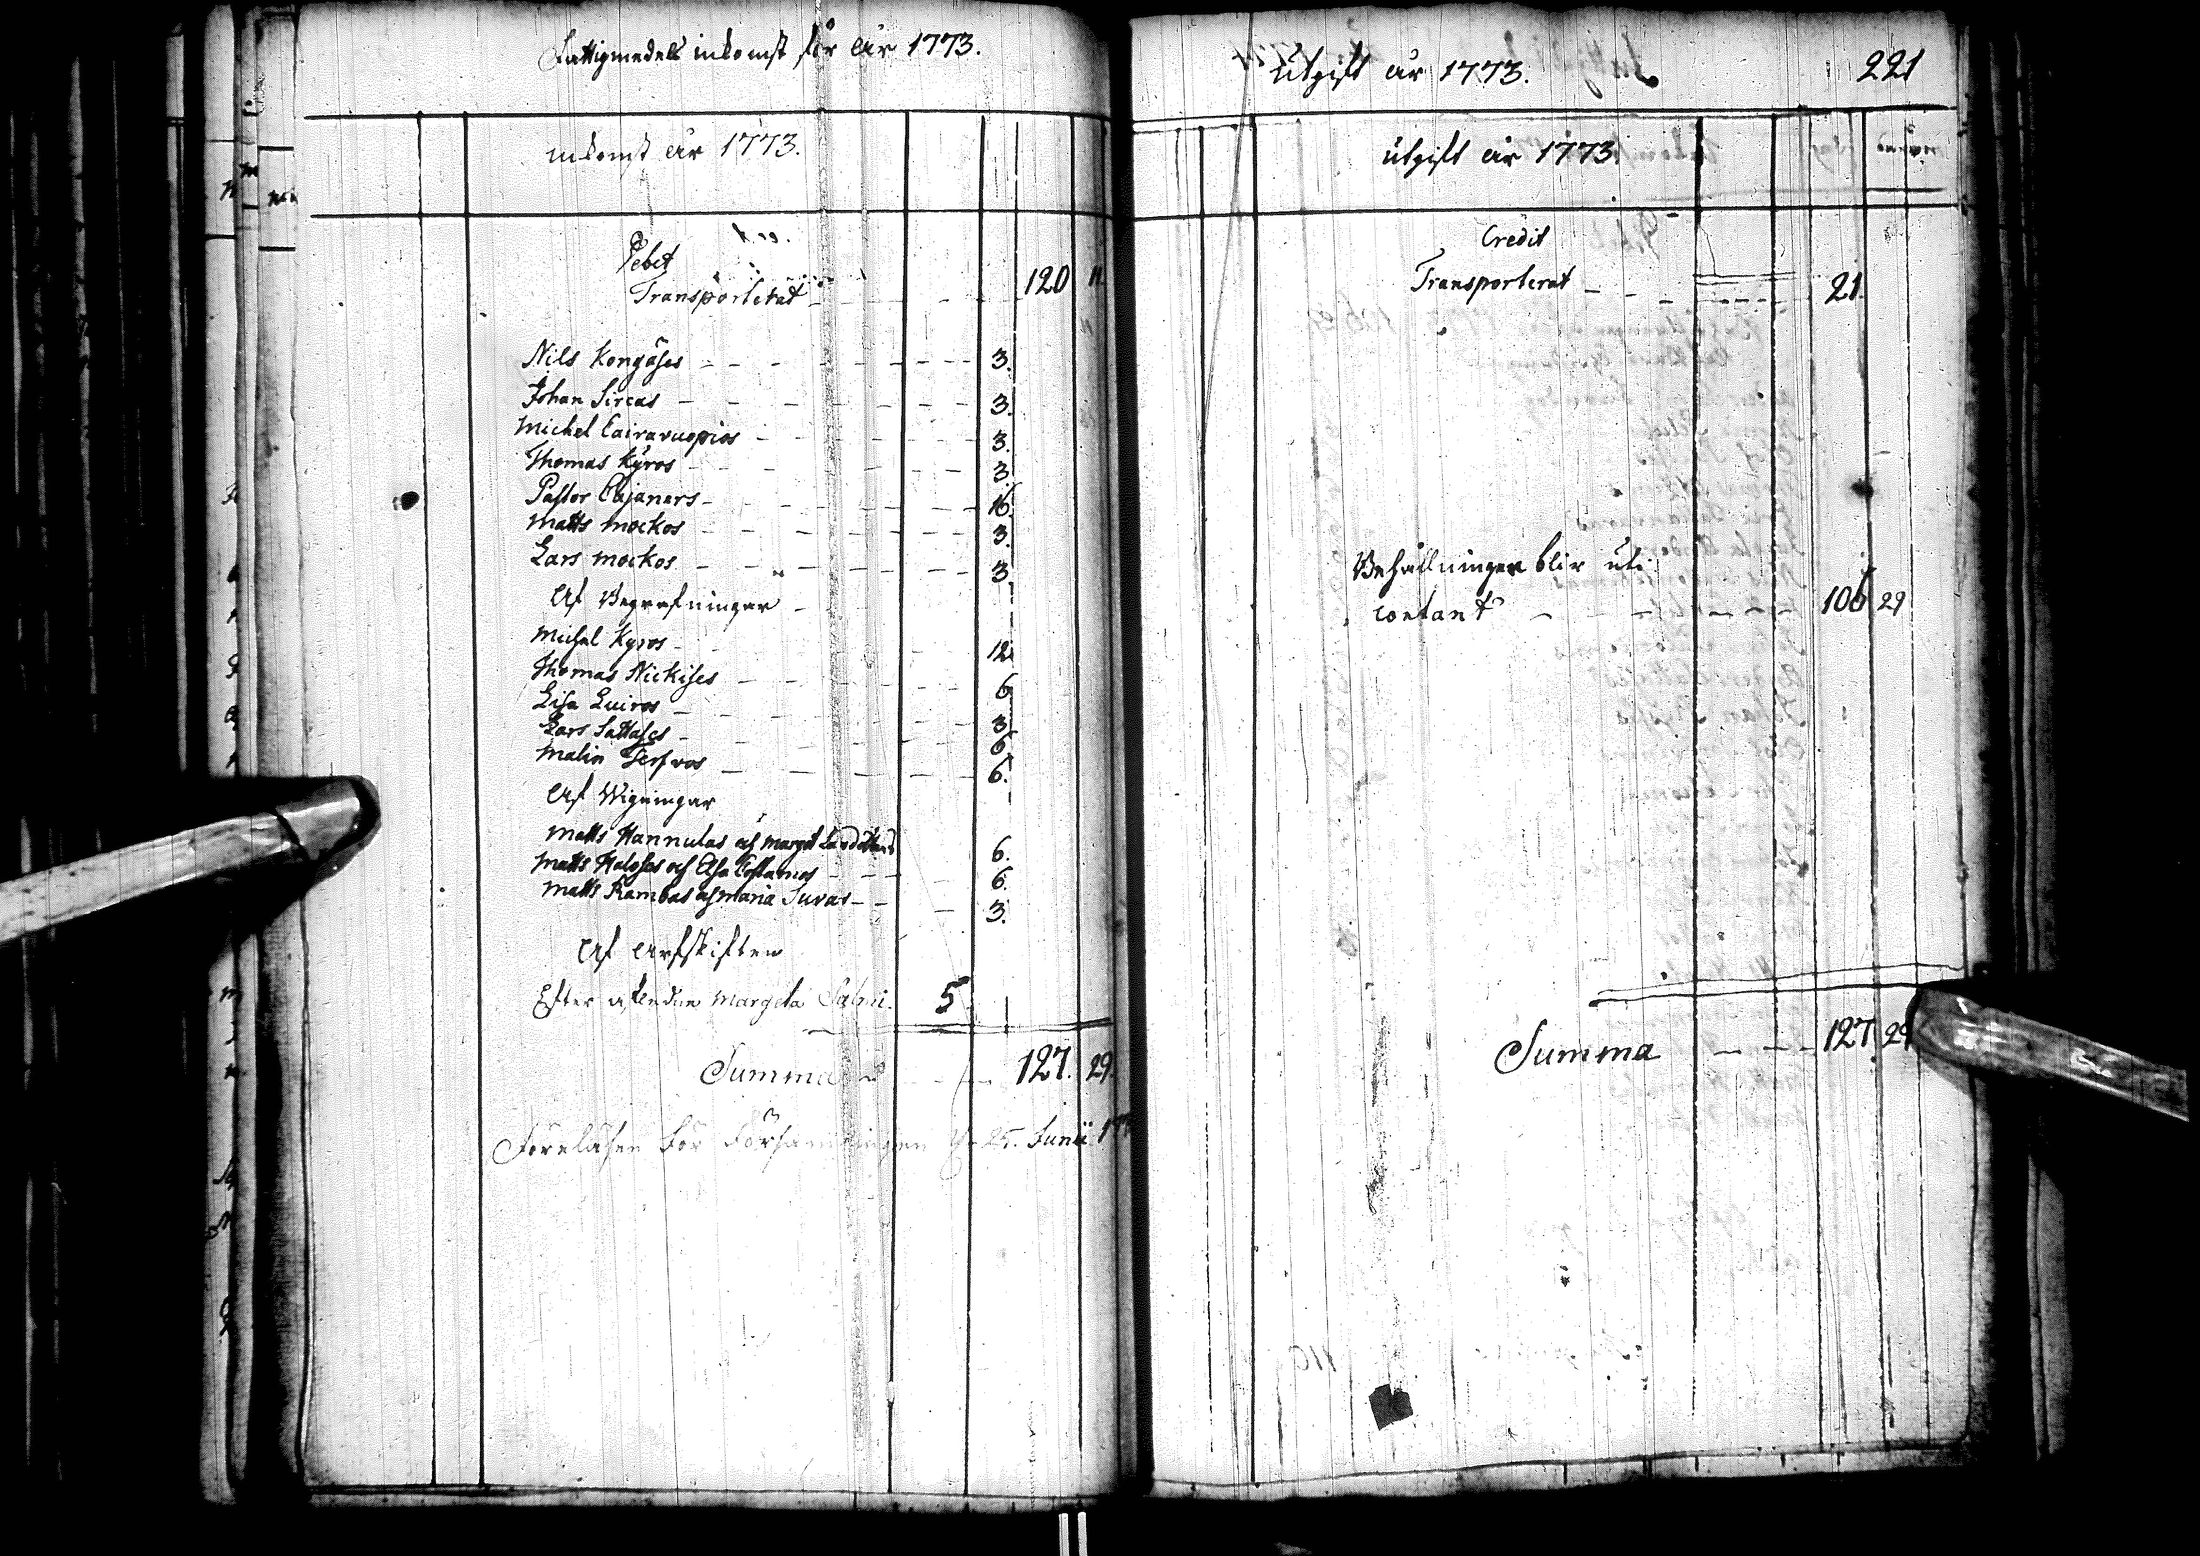 Fattigmedels inkomst för år 1773.
inkomst år 1773.
Debet
Transporterat 120 11.
Nils Kongäses 3.
Johan Sircas 3.
Michel Cairavuopios 3.
Thomas Kÿros 3.
Pastor Cajaners 16.
Matts Mockos 3.
Lars Mockos 3.
Af Begrafningar
Michel Kyros 12.
Thomas Nickises 6
Lisa Luiros 3.
Lars Sattases 6.
Malin Terfvos 6.
Af Wigningar
Matts Hannulas och Marget 6.
Matts Haloses och Elsa 6.
Matts Rambas och Maria Juvas 3.
Af Arfskiften
Efter aflendne Margeta Salmi. 5
Summa 127. 29.
Föreläsen för Församlingen d. 25. Junii
Utgift år 1773. 221
utgift år 1773
Credit
Transporterat 21.
Behållningen blir uti
contant 106 29
Summa 127 29